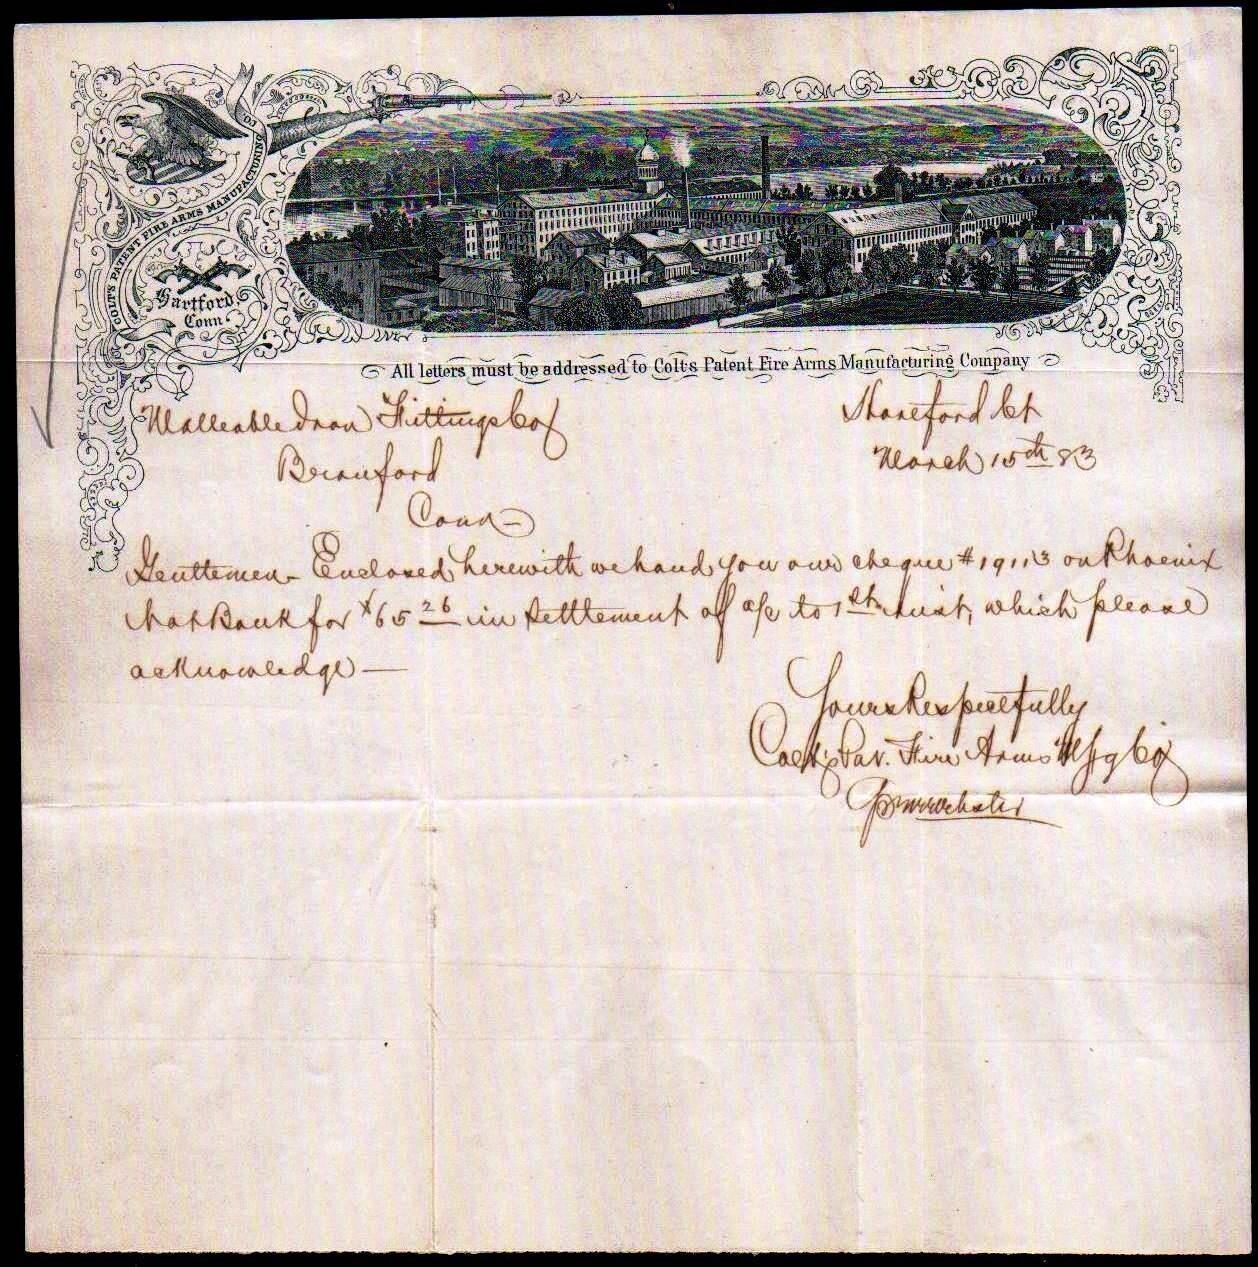 COLT'S PATENT FIRE ARMS MANUFACTURING CO.
Hartford,
Conn.
All letters must be addressed to Colt's Patent Fire Arms Manufacturing Company
Hartford Ct
March 15th 83
Malleable Iron Fittings Co
Branford
Conn-
Gentlemen- Enclosed herewith we hand you our cheque #19113 on Phoenix
Nat Bank for $65 26 in settlement of a/c to 1st inst, which please
acknowledge —
Yours Respectfully
Colt's Pat. Fire Arms Mfg Co